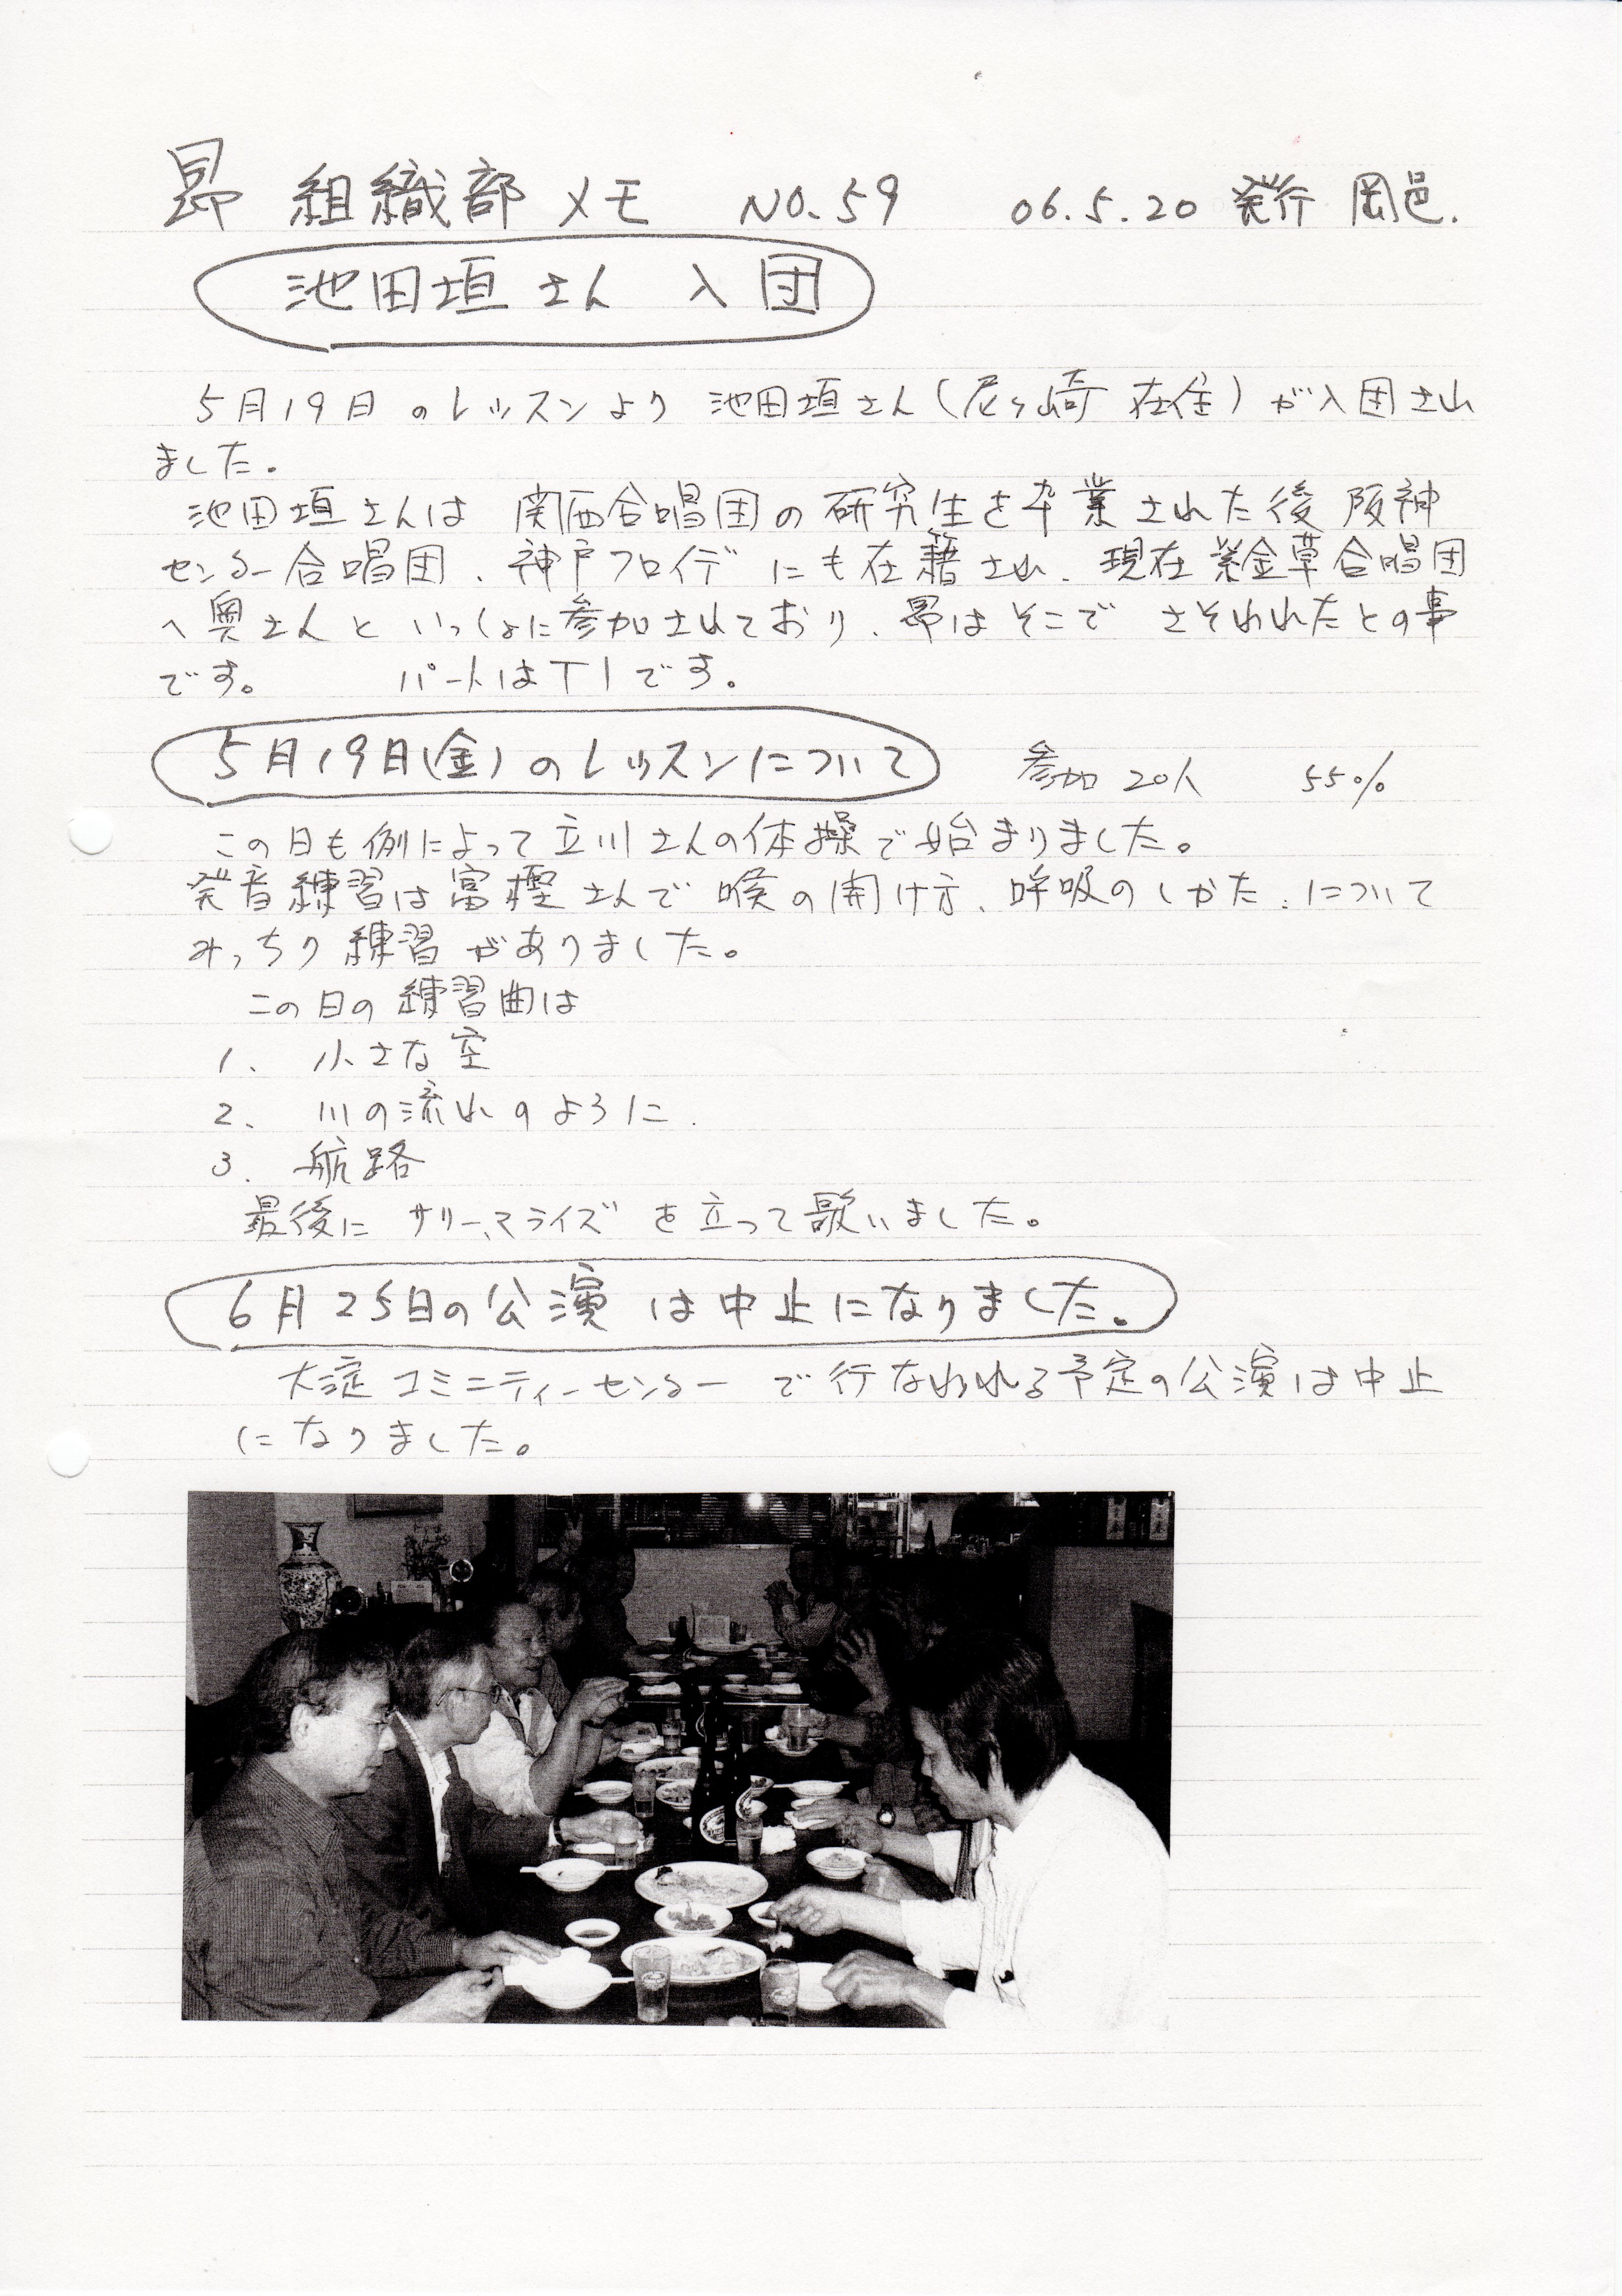 昴 組織部 メモ NO.59 06.5.20 発行 岡邑.
池田垣さん 入団
5月19日のレッスンより 池田垣さん(尼ヶ崎 在住)が入団され
ました。
池田垣さんは 関西合唱団の研究生を卒業された後 阪神
センター合唱団、神戸フロイデ にも在籍され、現在 紫金草合唱団
へ奥さんと いっしょに参加されており、昴はそこで さそわれたとの事
です。 パートはT1です。
5月19日(金)のレッスンについて 参加 20人 55%
この日も例によって立川さんの体操で始まりました。
発音練習は富樫さんで 喉の開け方、呼吸のしかた、について
みっちり練習がありました。
この日の練習曲は
1、 小さな空
2、 川の流れのように.
3. 航路
最後に サリー、マライズ を立って歌いました。
6月25日の公演 は中止になりました。
大淀コミニティーセンター で行なわれる予定の公演は中止
になりました。